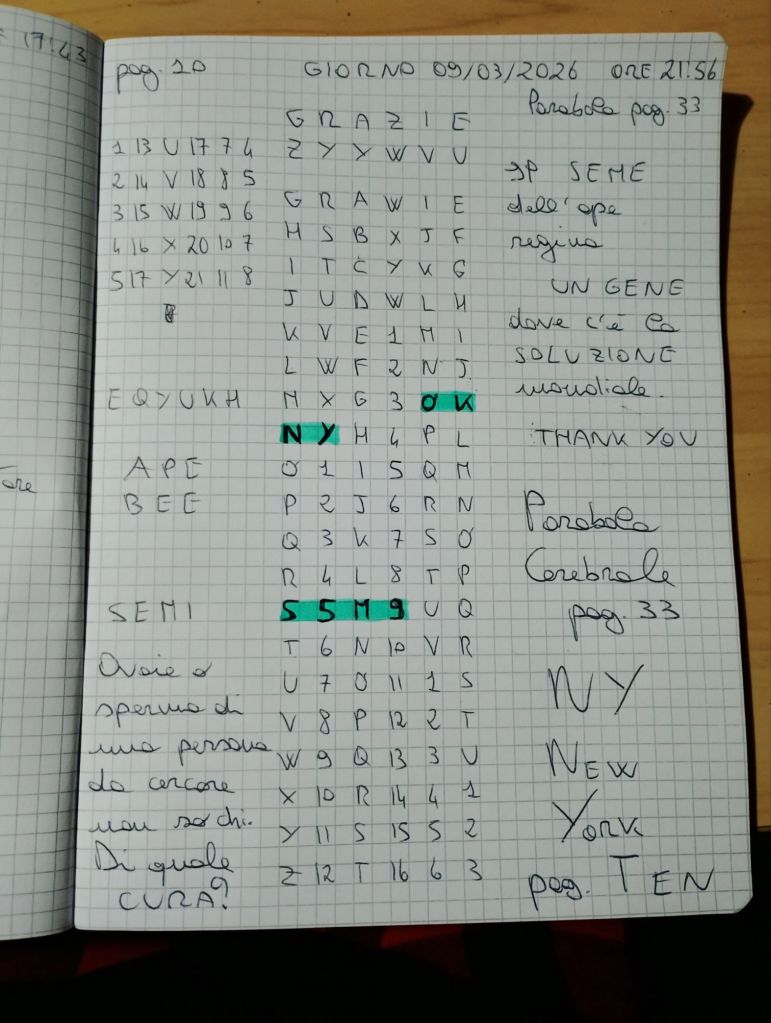 17:43
pag. 10 GIORNO 09/03/2026 ORE 21:56
Parabola pag. 33
G R A Z I E
1 13 U 17 7 4 Z Y X W V U
2 14 V 18 8 5 IP SEME
3 15 W 19 9 6 G R A W I E dell'ape
4 16 X 20 10 7 H S B X J F regina
5 17 Y 21 11 8 I T C Y K G
J U D W L H UN GENE
K V E 1 M I dove c'è la
L W F 2 N J SOLUZIONE
E Q Y U K H M X G 3 O K mondiale.
N Y H 4 P L THANK YOU
APE O 1 I 5 Q M
BEE P 2 J 6 R N Parabola
Q 3 K 7 S O
R 4 L 8 T P Cerebrale
SEMI S 5 M 9 U Q pag. 33
T 6 N 10 V R
Ovaie o U 7 O 11 1 S NY
sperma di V 8 P 12 2 T
una persona W 9 Q 13 3 U NEW
da cercare X 10 R 14 4 1
non so chi. Y 11 S 15 5 2 York
Di quale Z 12 T 16 6 3 pag. TEN
CURA?